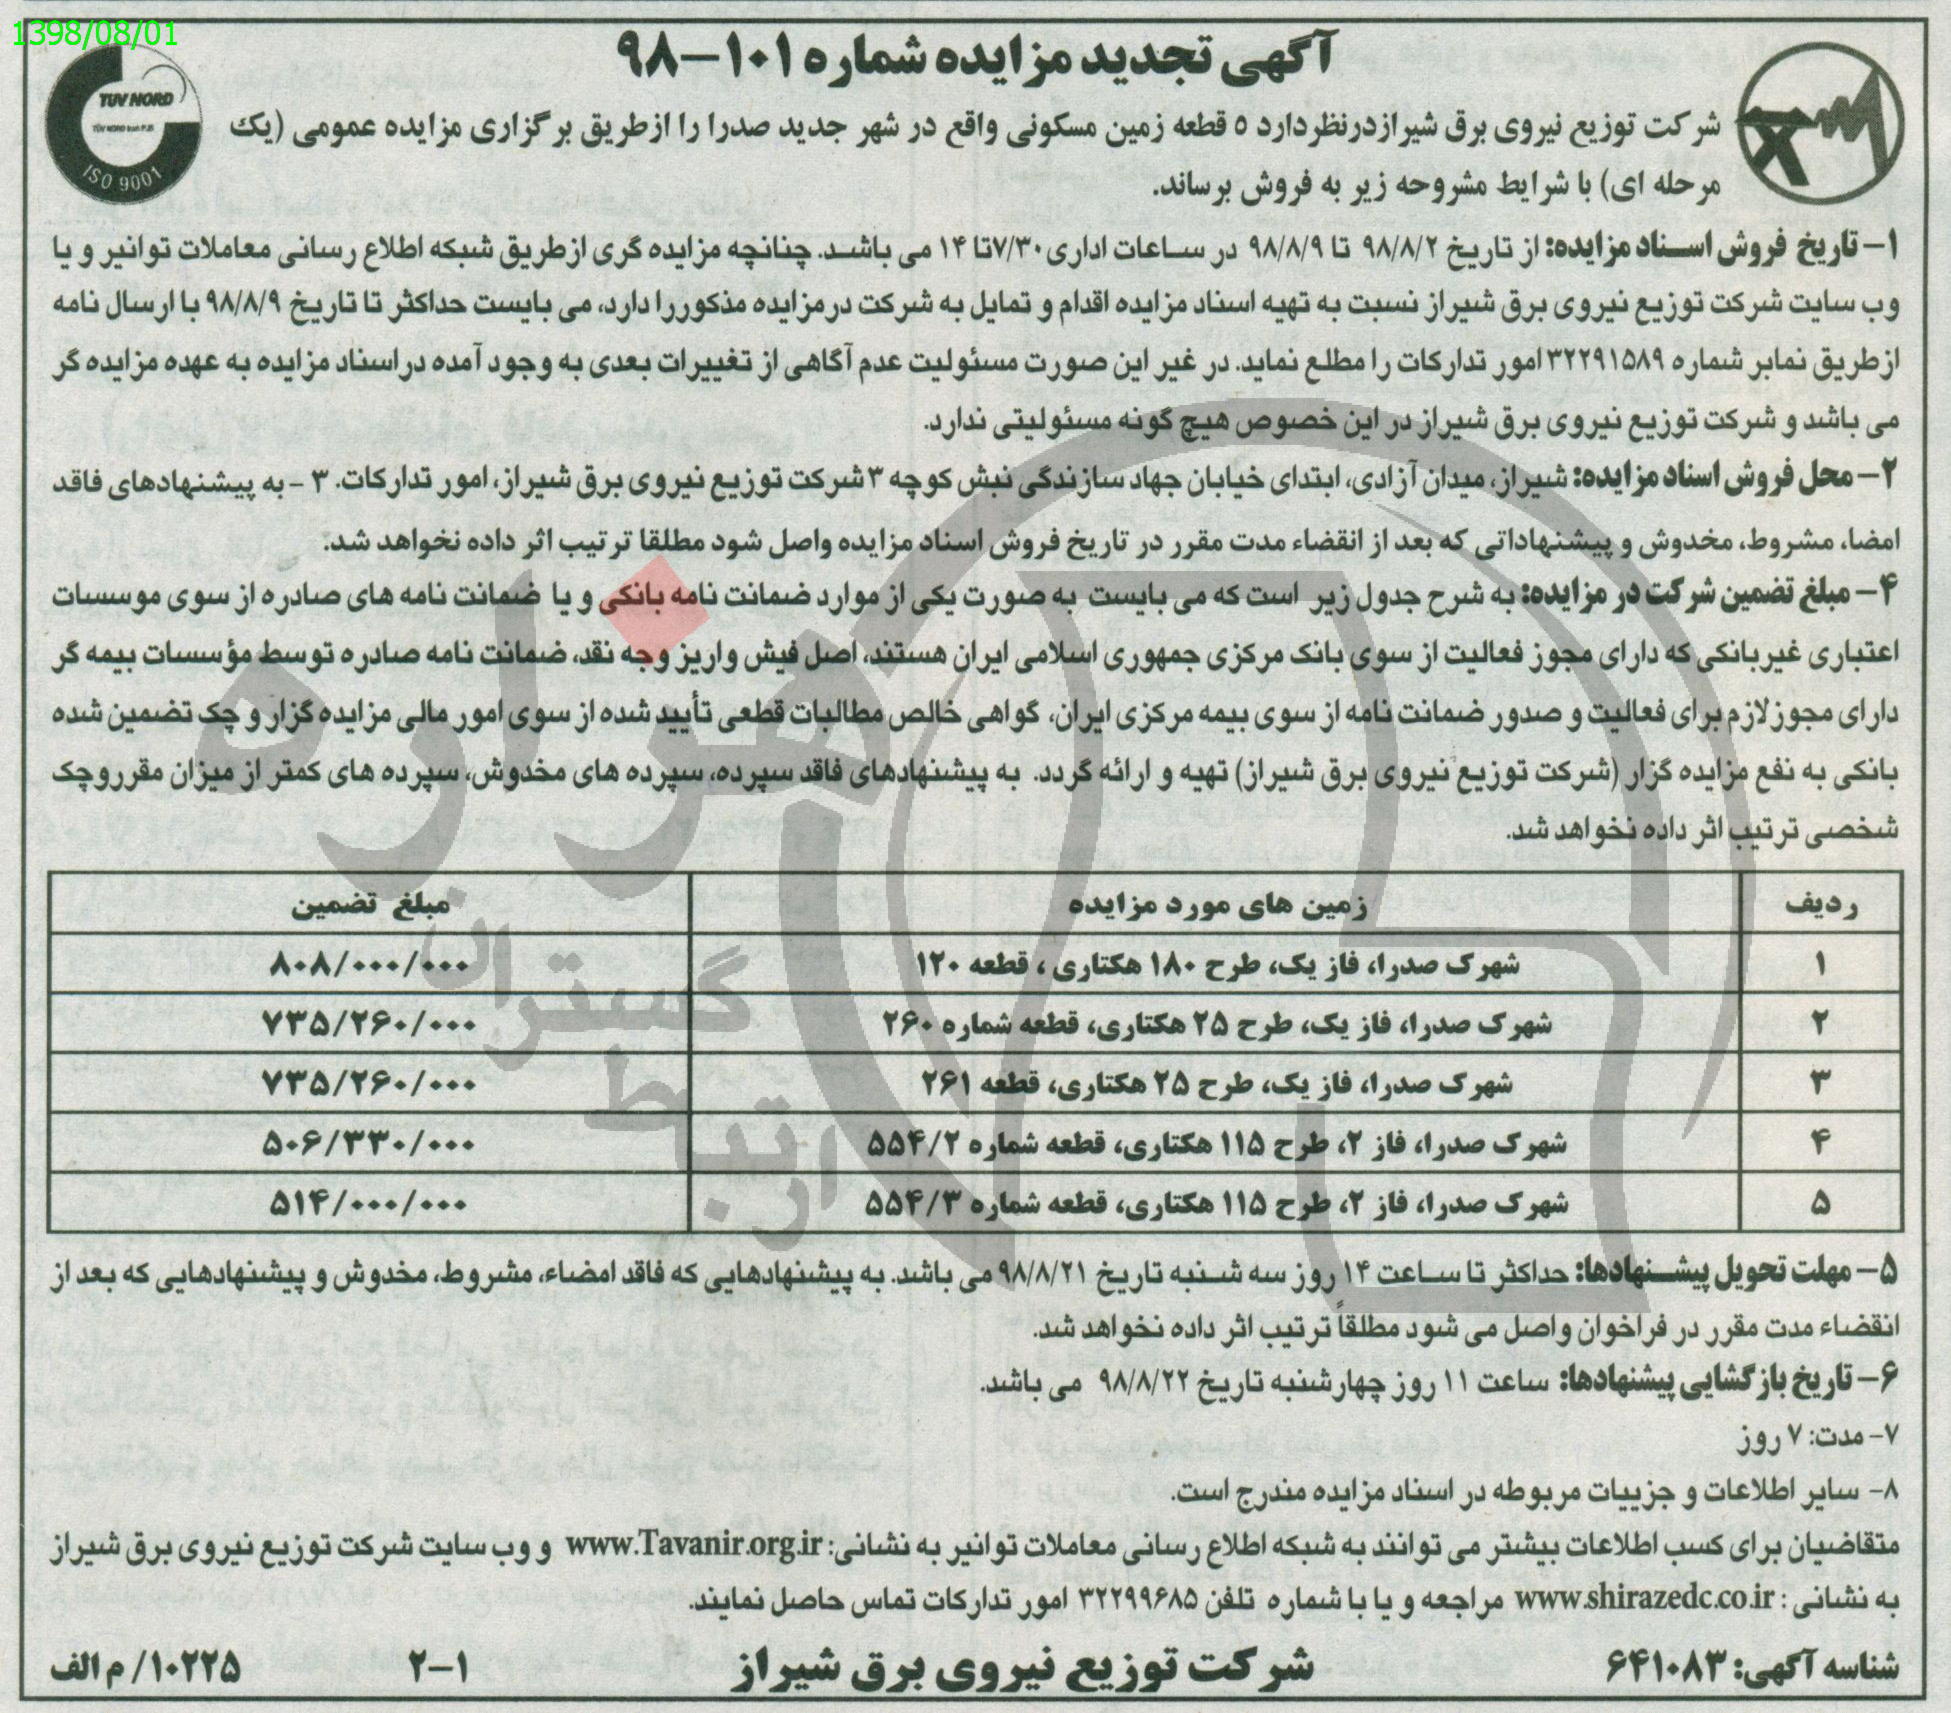 1398/08/01
آگهی تجدید مزایده شماره ۱۰۱-۹۸
TUV NORD
TÜV NORD Iran P.JS
ISO 9001
شرکت توزیع نیروی برق شیرازدرنظردارد ۵ قطعه زمین مسکونی واقع در شهر جدید صدرا را ازطریق برگزاری مزایده عمومی (یک
مرحله ای) با شرایط مشروحه زیر به فروش برساند.
۱- تاریخ فروش اسناد مزایده: از تاریخ ۹۸/۸/۲ تا ۹۸/۸/۹ در ساعات اداری ۷/۳۰تا ۱۴ می باشد. چنانچه مزایده گری ازطریق شبکه اطلاع رسانی معاملات توانیر و یا
وب سایت شرکت توزیع نیروی برق شیراز نسبت به تهیه اسناد مزایده اقدام و تمایل به شرکت درمزایده مذکوررا دارد، می بایست حداکثر تا تاریخ ۹۸/۸/۹ با ارسال نامه
ازطریق نمابر شماره ۳۲۲۹۱۵۸۹ امور تدارکات را مطلع نماید. در غیر این صورت مسئولیت عدم آگاهی از تغییرات بعدی به وجود آمده دراسناد مزایده به عهده مزایده گر
می باشد و شرکت توزیع نیروی برق شیراز در این خصوص هیچ گونه مسئولیتی ندارد.
۲- محل فروش اسناد مزایده: شیراز، میدان آزادی، ابتدای خیابان جهاد سازندگی نبش کوچه ۳ شرکت توزیع نیروی برق شیراز، امور تدارکات. ۳ - به پیشنهادهای فاقد
امضا، مشروط، مخدوش و پیشنهاداتی که بعد از انقضاء مدت مقرر در تاریخ فروش اسناد مزایده واصل شود مطلقا ترتیب اثر داده نخواهد شد.
۴- مبلغ تضمین شرکت در مزایده: به شرح جدول زیر است که می بایست به صورت یکی از موارد ضمانت نامه بانکی و یا ضمانت نامه های صادره از سوی موسسات
اعتباری غیربانکی که دارای مجوز فعالیت از سوی بانک مرکزی جمهوری اسلامی ایران هستند، اصل فیش واریز وجه نقد، ضمانت نامه صادره توسط مؤسسات بیمه گر
دارای مجوز لازم برای فعالیت و صدور ضمانت نامه از سوی بیمه مرکزی ایران، گواهی خالص مطالبات قطعی تأیید شده از سوی امور مالی مزایده گزار و چک تضمین شده
بانکی به نفع مزایده گزار (شرکت توزیع نیروی برق شیراز) تهیه و ارائه گردد. به پیشنهادهای فاقد سپرده، سپرده های مخدوش، سپرده های کمتر از میزان مقرروچک
شخصی ترتیب اثر داده نخواهد شد.
ردیف زمین های مورد مزایده مبلغ تضمین
۱ شهرک صدرا، فاز یک، طرح ۱۸۰ هکتاری ، قطعه ۱۲۰ ۸۰۸/۰۰۰/۰۰۰
۲ شهرک صدرا، فاز یک، طرح ۲۵ هکتاری، قطعه شماره ۲۶۰ ۷۳۵/۲۶۰/۰۰۰
۳ شهرک صدرا، فاز یک، طرح ۲۵ هکتاری، قطعه ۲۶۱ ۷۳۵/۲۶۰/۰۰۰
۴ شهرک صدرا، فاز ۲، طرح ۱۱۵ هکتاری، قطعه شماره ۵۵۴/۲ ۵۰۶/۳۳۰/۰۰۰
۵ شهرک صدرا، فاز ۲، طرح ۱۱۵ هکتاری، قطعه شماره ۵۵۴/۳ ۵۱۴/۰۰۰/۰۰۰
هزاره
گستران
ارتباط
۵- مهلت تحویل پیشنهادها: حداکثر تا ساعت ۱۴ روز سه شنبه تاریخ ۹۸/۸/۲۱ می باشد. به پیشنهادهایی که فاقد امضاء، مشروط، مخدوش و پیشنهادهایی که بعد از
انقضاء مدت مقرر در فراخوان واصل می شود مطلقاً ترتیب اثر داده نخواهد شد.
۶- تاریخ بازگشایی پیشنهادها: ساعت ۱۱ روز چهارشنبه تاریخ ۹۸/۸/۲۲ می باشد.
۷- مدت: ۷ روز
۸- سایر اطلاعات و جزییات مربوطه در اسناد مزایده مندرج است.
متقاضیان برای کسب اطلاعات بیشتر می توانند به شبکه اطلاع رسانی معاملات توانیر به نشانی: www.Tavanir.org.ir و وب سایت شرکت توزیع نیروی برق شیراز
به نشانی : www.shirazedc.co.ir مراجعه و یا با شماره تلفن ۳۲۲۹۹۶۸۵ امور تدارکات تماس حاصل نمایند.
شناسه آگهی: ۶۴۱۰۸۳ شرکت توزیع نیروی برق شیراز ۱-۲ ۱۰۲۲۵/ م الف